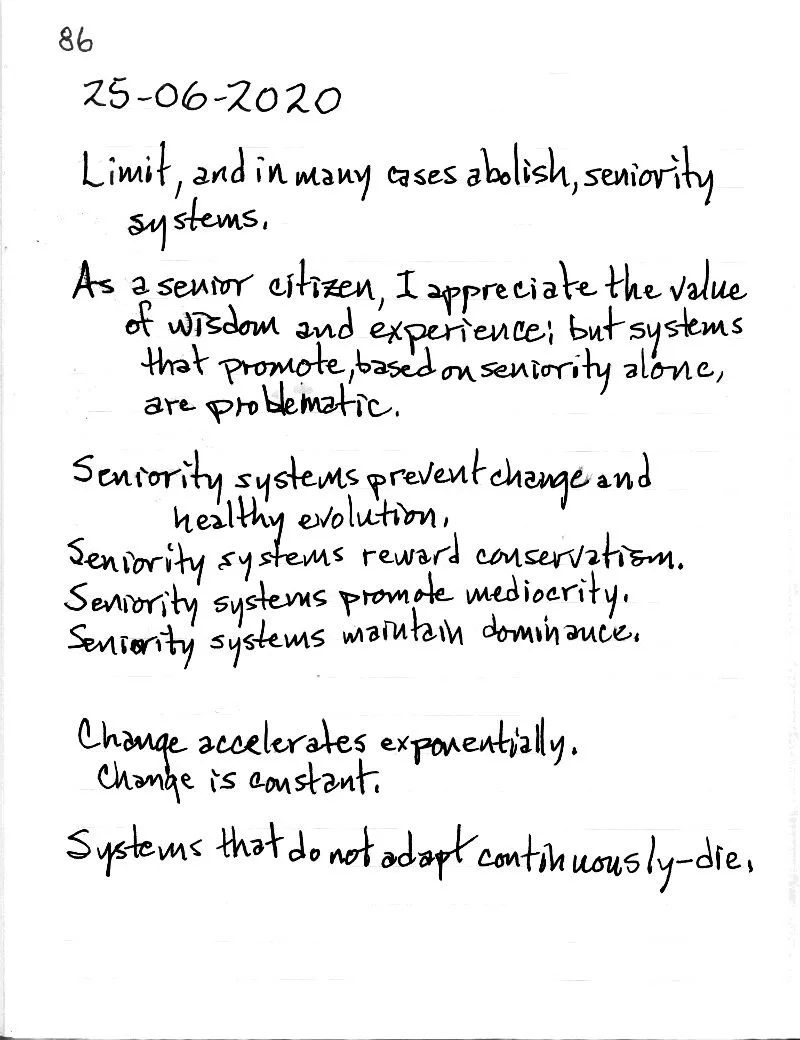 86
25-06-2020
Limit, and in many cases abolish, seniority
systems.
As a senior citizen, I appreciate the value
of wisdom and experience; but systems
that promote, based on seniority alone,
are problematic.
Seniority systems prevent change and
healthy evolution.
Seniority systems reward conservatism.
Seniority systems promote mediocrity.
Seniority systems maintain dominance.
Change accelerates exponentially.
Change is constant.
Systems that do not adapt continuously-die.